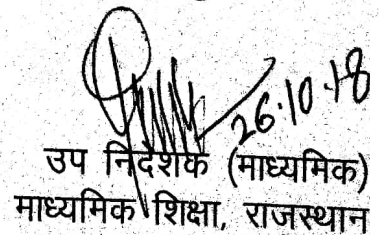 26.10.18
उप निदेशक (माध्यमिक)
माध्यमिक शिक्षा, राजस्थान